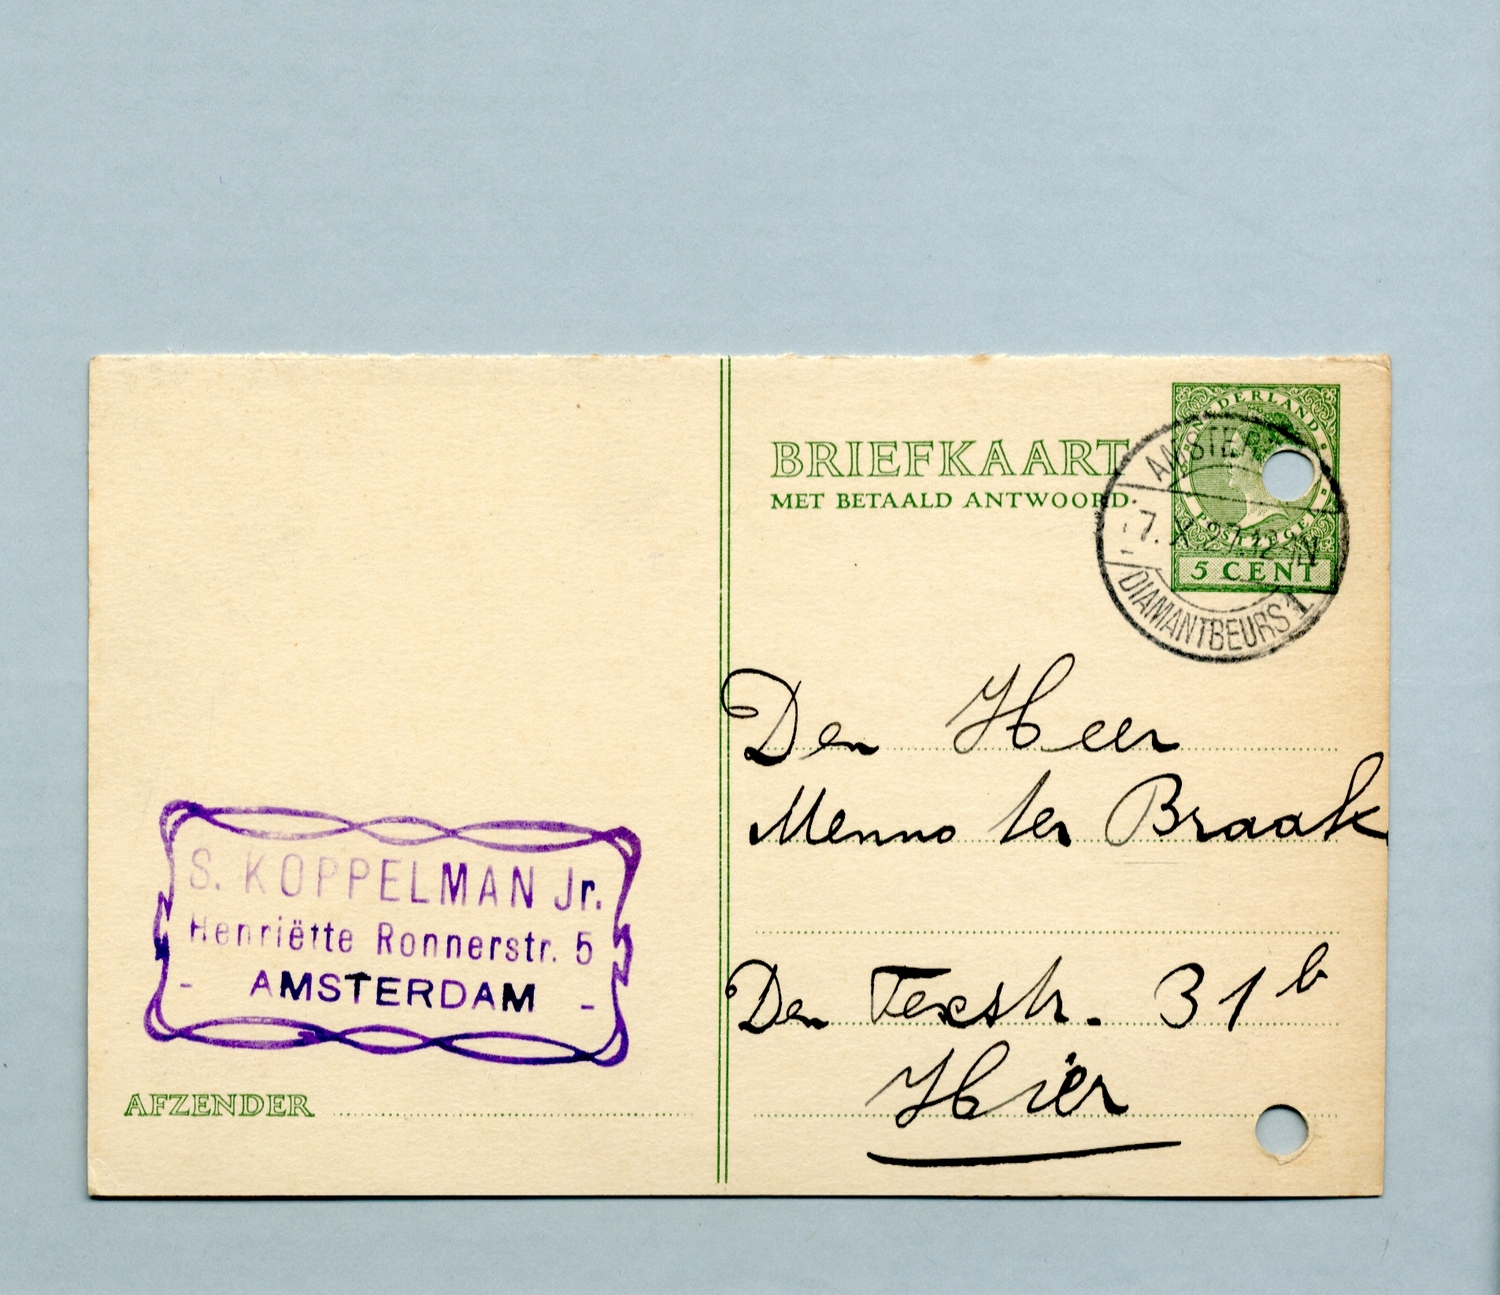 NEDERLAND
BRIEFKAART
MET BETAALD ANTWOORD.
POSTZEGEL
5 CENT
7. X.27.12-1N
DIAMANTBEURS 1
Den Heer
Menno ter Braak
S. KOPPELMAN Jr.
Henriëtte Ronnerstr. 5
- AMSTERDAM -
Den Texstr. 31 b
Hier
AFZENDER